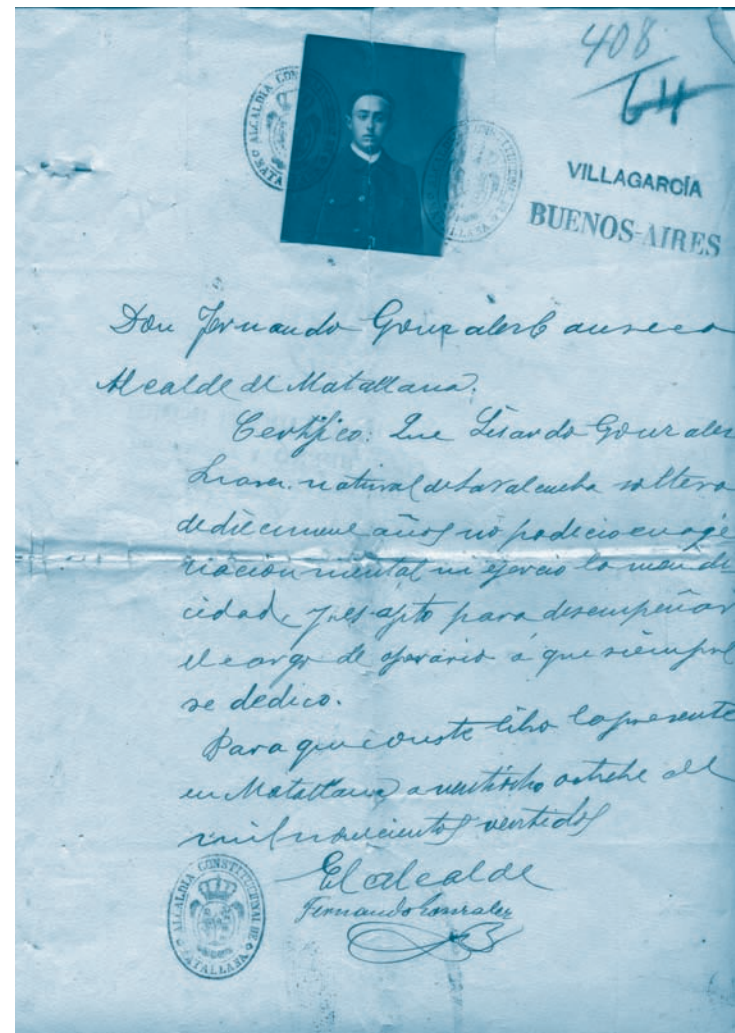 408
64
ALCALDIA CONSTITUCIONAL DE MATALLANA
VILLAGARCÍA
BUENOS-AIRES
Don Fernando Gonzalez
Alcalde de Matallana.
Certifico: Que Lisardo Gonzalez
natural de La Valcueba soltero
de diecinueve años no padecio enage
nacion mental ni ejercio la mendi
cidad, y es apto para desempeñar
el cargo de operario á que siempre
se dedico.
Para que conste libro la presente
en Matallana a ventiocho octubre del
mil novecientos ventidos
El alcalde
Fernando Gonzalez
ALCALDIA CONSTITUCINAL DE MATALLANA